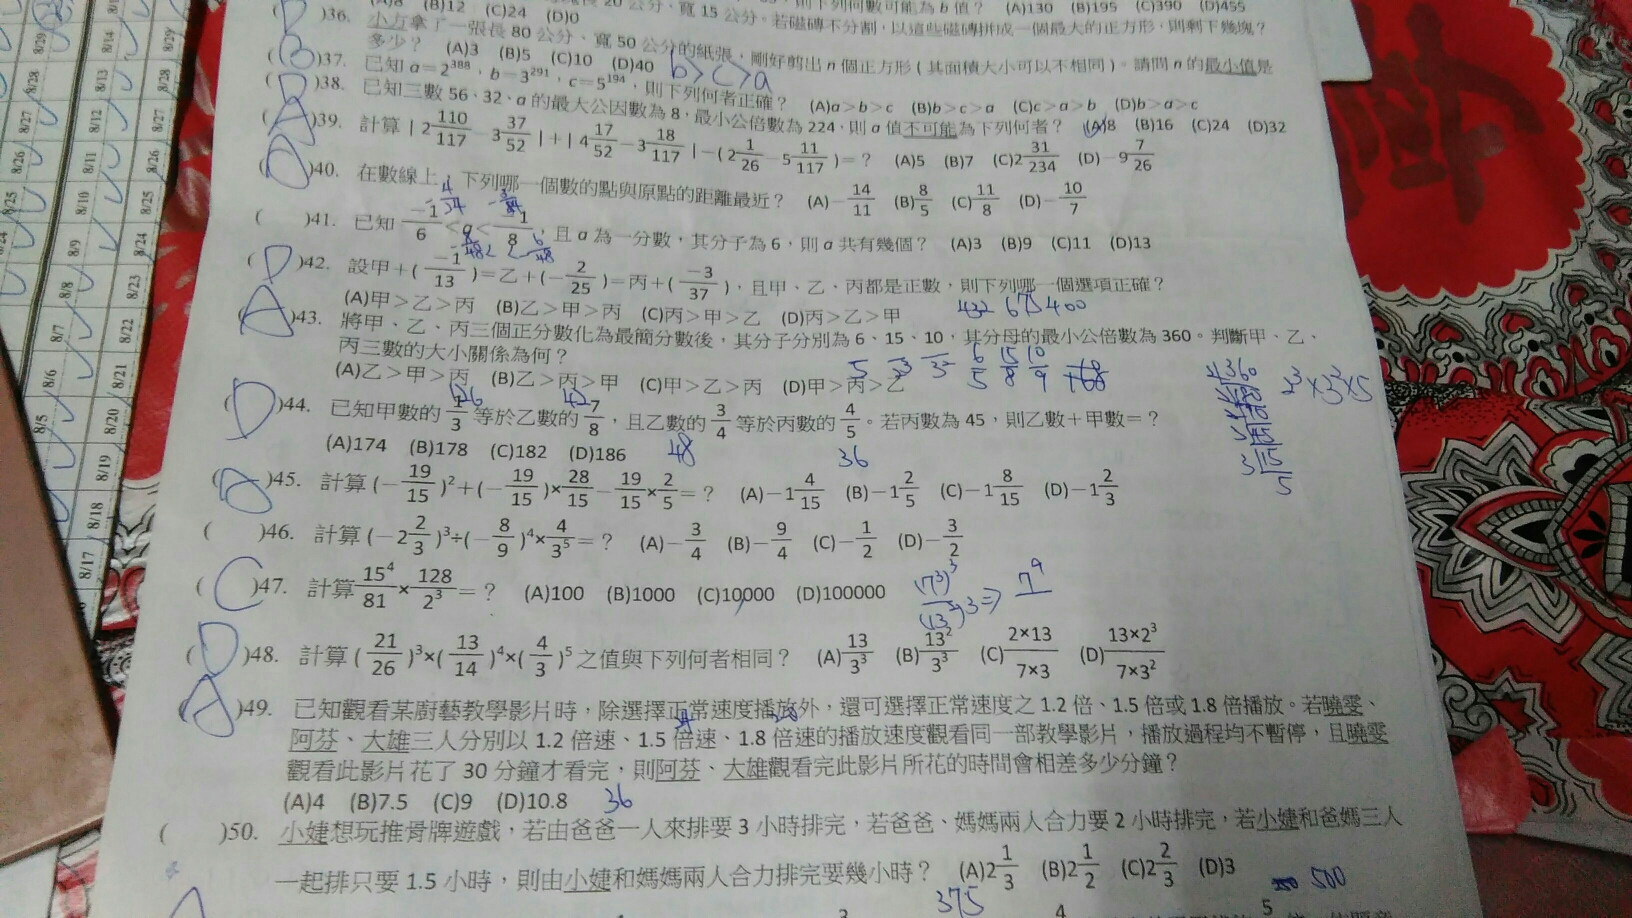 (A)8 (B)12 (C)24 (D)0
則下列何數可能為 b 值？ (A)130 (B)195 (C)390 (D)455
長 20 公分、寬 15 公分。若磁磚不分割，以這些磁磚拼成一個最大的正方形，則剩下幾塊？
)36. 小方拿了一張長 80 公分、寬 50 公分的紙張，剛好剪出 n 個正方形 ( 其面積大小可以不相同 )。請問 n 的最小值是
多少？ (A)3 (B)5 (C)10 (D)40
b>c>a
(B)37. 已知 a＝2^388，b＝3^291，c＝5^194，則下列何者正確？ (A)a＞b＞c (B)b＞c＞a (C)c＞a＞b (D)b＞a＞c
(D)38. 已知三數 56、32、a 的最大公因數為 8，最小公倍數為 224，則 a 值不可能為下列何者？ (A)8 (B)16 (C)24 (D)32
(A)39. 計算 | 2 110/117 － 3 37/52 | ＋ | 4 17/52 － 3 18/117 | －( 2 1/26 － 5 11/117 )＝？ (A)5 (B)7 (C)2 31/234 (D)－9 7/26
)40. 在數線上，下列哪一個數的點與原點的距離最近？ (A)－14/11 (B)8/5 (C)11/8 (D)－10/7
( )41. 已知 －1/6 ＜a＜ －1/8，且 a 為一分數，其分子為 6，則 a 共有幾個？ (A)3 (B)9 (C)11 (D)13
(D)42. 設甲＋( －1/13 )＝乙＋(－ 2/25 )＝丙＋( －3/37 )，且甲、乙、丙都是正數，則下列哪一個選項正確？
(A)甲＞乙＞丙 (B)乙＞甲＞丙 (C)丙＞甲＞乙 (D)丙＞乙＞甲
432 675 400
(A)43. 將甲、乙、丙三個正分數化為最簡分數後，其分子分別為 6、15、10，其分母的最小公倍數為 360。判斷甲、乙、
丙三數的大小關係為何？
6/5 15/8 10/9
(A)乙＞甲＞丙 (B)乙＞丙＞甲 (C)甲＞乙＞丙 (D)甲＞丙＞乙
2^3×3^2×5
126 42
(D)44. 已知甲數的 1/3 等於乙數的 7/8，且乙數的 3/4 等於丙數的 4/5。若丙數為 45，則乙數＋甲數＝？
(A)174 (B)178 (C)182 (D)186
48 36
)45. 計算 (－19/15)^2＋(－19/15)×28/15－19/15×2/5＝？ (A)－1 4/15 (B)－1 2/5 (C)－1 8/15 (D)－1 2/3
( )46. 計算 (－2 2/3)^3÷(－8/9)^4×4/3^5＝？ (A)－3/4 (B)－9/4 (C)－1/2 (D)－3/2
(C)47. 計算 15^4/81×128/2^3＝？ (A)100 (B)1000 (C)10000 (D)100000
(D)48. 計算 (21/26)^3×(13/14)^4×(4/3)^5 之值與下列何者相同？ (A)13/3^3 (B)13^2/3^3 (C)2×13/7×3 (D)13×2^3/7×3^2
(A)49. 已知觀看某廚藝教學影片時，除選擇正常速度播放外，還可選擇正常速度之 1.2 倍、1.5 倍或 1.8 倍播放。若曉雯、
阿芬、大雄三人分別以 1.2 倍速、1.5 倍速、1.8 倍速的播放速度觀看同一部教學影片，播放過程均不暫停，且曉雯
觀看此影片花了 30 分鐘才看完，則阿芬、大雄觀看完此影片所花的時間會相差多少分鐘？
(A)4 (B)7.5 (C)9 (D)10.8
36
( )50. 小婕想玩推骨牌遊戲，若由爸爸一人來排要 3 小時排完，若爸爸、媽媽兩人合力要 2 小時排完，若小婕和爸媽三人
一起排只要 1.5 小時，則由小婕和媽媽兩人合力排完要幾小時？ (A)2 1/3 (B)2 1/2 (C)2 2/3 (D)3
375 500
8/29 8/28 8/27 8/26 8/25 8/24
8/14 8/13 8/12 8/11 8/10 8/9 8/8 8/7 8/6 8/5
8/29 8/28 8/27 8/26 8/25 8/24 8/23 8/22 8/21 8/20 8/19 8/18 8/17